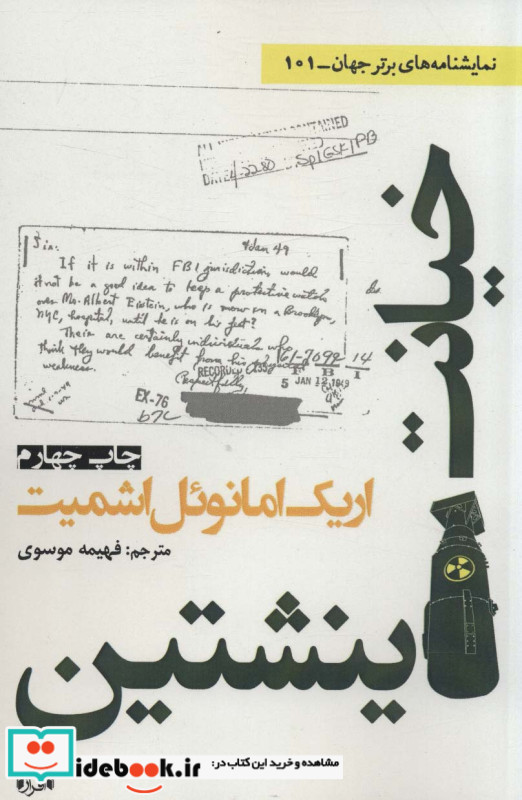 نمایشنامه‌های برتر جهان_۱۰۱
خیانت
اینشتین
4-22-80 Sp1GSK/PB
4 Jan 49
Sir:
If it is within FBI jurisdiction, would
it not be a good idea to keep a protective watch
over Mr. Albert Eistein, who is now in a Brooklyn,
NYC, hospital, until he is on his feet?
There are certainly individuals who
think they would benefit from his
weakness.
61-7099 14
RECORDED
5 JAN 12 1949
Respectfully,
EX-76
b7C
چاپ چهارم
اریک امانوئل اشمیت
مترجم: فهیمه موسوی
افراز
مشاهده و خرید این کتاب در:
idebook.ir